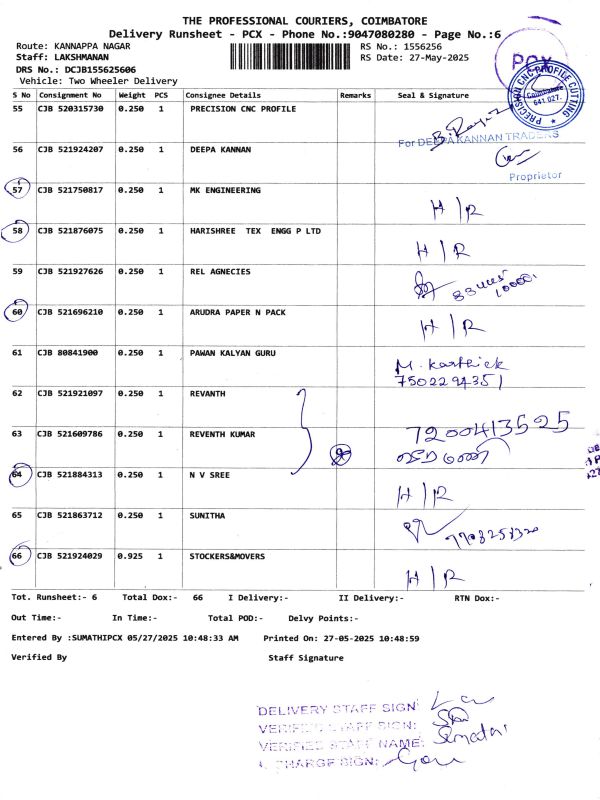 THE PROFESSIONAL COURIERS, COIMBATORE
Delivery Runsheet - PCX - Phone No.:9047080280 - Page No.:6
Route: KANNAPPA NAGAR
RS No.: 1556256
Staff: LAKSHMANAN
RS Date: 27-May-2025
DRS No.: DCJB155625606
Vehicle: Two Wheeler Delivery
PCX
PRECISION CNC PROFILE CUTTING
Coimbatore
641 027.
S No Consignment No Weight PCS Consignee Details Remarks Seal & Signature
55 CJB 520315730 0.250 1 PRECISION CNC PROFILE
For DEEPA KANNAN TRADERS
56 CJB 521924207 0.250 1 DEEPA KANNAN
Proprietor
57 CJB 521750817 0.250 1 MK ENGINEERING H/R
58 CJB 521876075 0.250 1 HARISHREE TEX ENGG P LTD H/R
59 CJB 521927626 0.250 1 REL AGNECIES
60 CJB 521696210 0.250 1 ARUDRA PAPER N PACK H/R
61 CJB 80841900 0.250 1 PAWAN KALYAN GURU M. Karthick
7502294351
62 CJB 521921097 0.250 1 REVANTH
63 CJB 521609786 0.250 1 REVENTH KUMAR 7200413525
64 CJB 521884313 0.250 1 N V SREE H/R
65 CJB 521863712 0.250 1 SUNITHA
66 CJB 521924029 0.925 1 STOCKERS&MOVERS H/R
Tot. Runsheet:- 6 Total Dox:- 66 I Delivery:- II Delivery:- RTN Dox:-
Out Time:- In Time:- Total POD:- Delvy Points:-
Entered By :SUMATHIPCX 05/27/2025 10:48:33 AM Printed On: 27-05-2025 10:48:59
Verified By Staff Signature
DELIVERY STAFF SIGN:
VERIFIED STAFF SIGN:
VERIFIED STAFF NAME:
CHARGE SIGN: